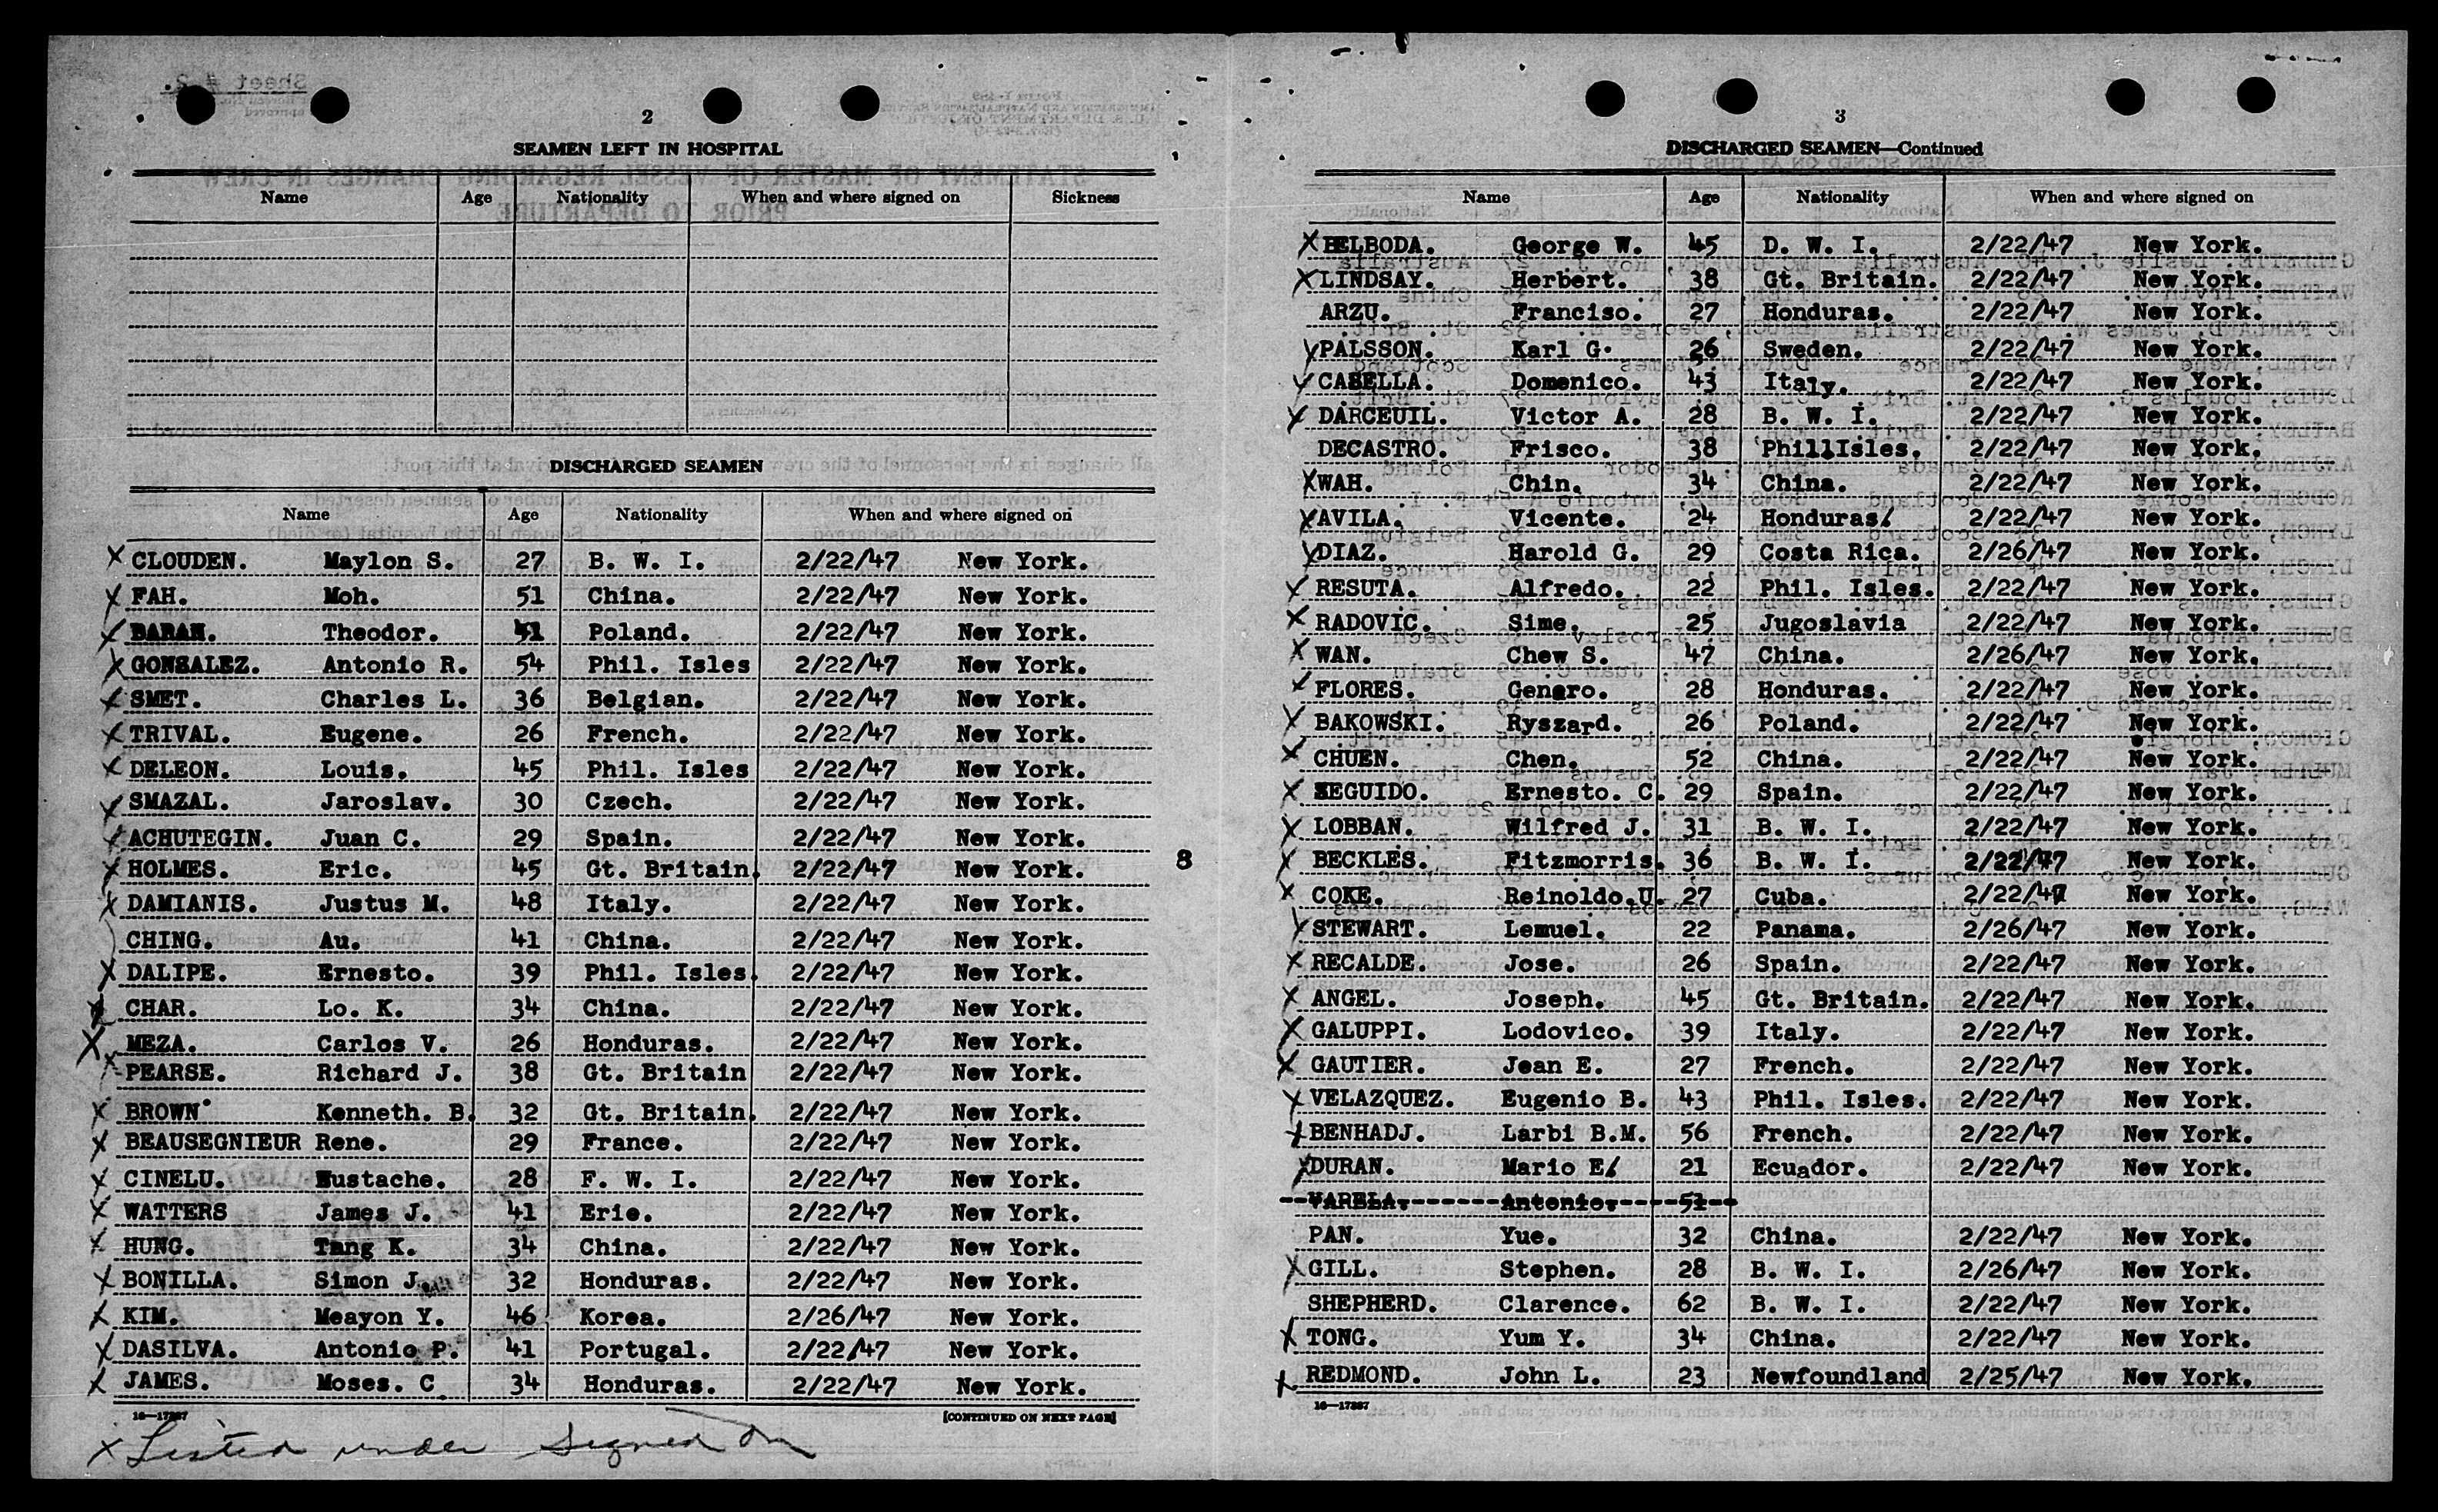 2
SEAMEN LEFT IN HOSPITAL
Name Age Nationality When and where signed on Sickness
DISCHARGED SEAMEN
Name Age Nationality When and where signed on
X CLOUDEN. Maylon S. 27 B. W. I. 2/22/47 New York.
X FAH. Moh. 51 China. 2/22/47 New York.
X BARAN. Theodor. 41 Poland. 2/22/47 New York.
X GONSALEZ. Antonio R. 54 Phil. Isles 2/22/47 New York.
X SMET. Charles L. 36 Belgian. 2/22/47 New York.
X TRIVAL. Eugene. 26 French. 2/22/47 New York.
X DELEON. Louis. 45 Phil. Isles 2/22/47 New York.
X SMAZAL. Jaroslav. 30 Czech. 2/22/47 New York.
X ACHUTEGIN. Juan C. 29 Spain. 2/22/47 New York.
X HOLMES. Eric. 45 Gt. Britain. 2/22/47 New York.
X DAMIANIS. Justus M. 48 Italy. 2/22/47 New York.
CHING. Au. 41 China. 2/22/47 New York.
X DALIPE. Ernesto. 39 Phil. Isles. 2/22/47 New York.
X CHAR. Lo. K. 34 China. 2/22/47 New York.
X MEZA. Carlos V. 26 Honduras. 2/22/47 New York.
X PEARSE. Richard J. 38 Gt. Britain 2/22/47 New York.
X BROWN. Kenneth. B. 32 Gt. Britain. 2/22/47 New York.
X BEAUSEGNIEUR Rene. 29 France. 2/22/47 New York.
X CINELU. Eustache. 28 F. W. I. 2/22/47 New York.
X WATTERS James J. 41 Erie. 2/22/47 New York.
X HUNG. Tang K. 34 China. 2/22/47 New York.
X BONILLA. Simon J. 32 Honduras. 2/22/47 New York.
X KIM. Meayon Y. 46 Korea. 2/26/47 New York.
X DASILVA. Antonio P. 41 Portugal. 2/22/47 New York.
X JAMES. Moses. C 34 Honduras. 2/22/47 New York.
16—17287 [CONTINUED ON NEXT PAGE]
x Listed under Signed On
8
3
DISCHARGED SEAMEN—Continued
Name Age Nationality When and where signed on
X HELBODA. George W. 45 D. W. I. 2/22/47 New York.
X LINDSAY. Herbert. 38 Gt. Britain. 2/22/47 New York.
ARZU. Franciso. 27 Honduras. 2/22/47 New York.
X PALSSON. Karl G. 26 Sweden. 2/22/47 New York.
X CASELLA. Domenico. 43 Italy. 2/22/47 New York.
X DARCEUIL. Victor A. 28 B. W. I. 2/22/47 New York.
DECASTRO. Frisco. 38 Phill Isles. 2/22/47 New York.
X WAH. Chin. 34 China. 2/22/47 New York.
X AVILA. Vicente. 24 Honduras/ 2/22/47 New York.
X DIAZ. Harold G. 29 Costa Rica. 2/26/47 New York.
X RESUTA. Alfredo. 22 Phil. Isles. 2/22/47 New York.
X RADOVIC. Sime. 25 Jugoslavia 2/22/47 New York.
X WAN. Chew S. 47 China. 2/26/47 New York.
X FLORES. Genaro. 28 Honduras. 2/22/47 New York.
X BAKOWSKI. Ryszard. 26 Poland. 2/22/47 New York.
X CHUEN. Chen. 52 China. 2/22/47 New York.
X SEGUIDO. Ernesto. C. 29 Spain. 2/22/47 New York.
X LOBBAN. Wilfred J. 31 B. W. I. 2/22/47 New York.
X BECKLES. Fitzmorris. 36 B. W. I. 2/22/47 New York.
X COKE. Reinoldo.U. 27 Cuba. 2/22/47 New York.
X STEWART. Lemuel. 22 Panama. 2/26/47 New York.
X RECALDE. Jose. 26 Spain. 2/22/47 New York.
X ANGEL. Joseph. 45 Gt. Britain. 2/22/47 New York.
X GALUPPI. Lodovico. 39 Italy. 2/22/47 New York.
X GAUTIER. Jean E. 27 French. 2/22/47 New York.
X VELAZQUEZ. Eugenio B. 43 Phil. Isles. 2/22/47 New York.
X BENHADJ. Larbi B.M. 56 French. 2/22/47 New York.
X DURAN. Mario E/ 21 Ecuador. 2/22/47 New York.
VARELA. Antonio. 51
PAN. Yue. 32 China. 2/22/47 New York.
X GILL. Stephen. 28 B. W. I. 2/26/47 New York.
SHEPHERD. Clarence. 62 B. W. I. 2/22/47 New York.
X TONG. Yum Y. 34 China. 2/22/47 New York.
X REDMOND. John L. 23 Newfoundland 2/25/47 New York.
16—17287